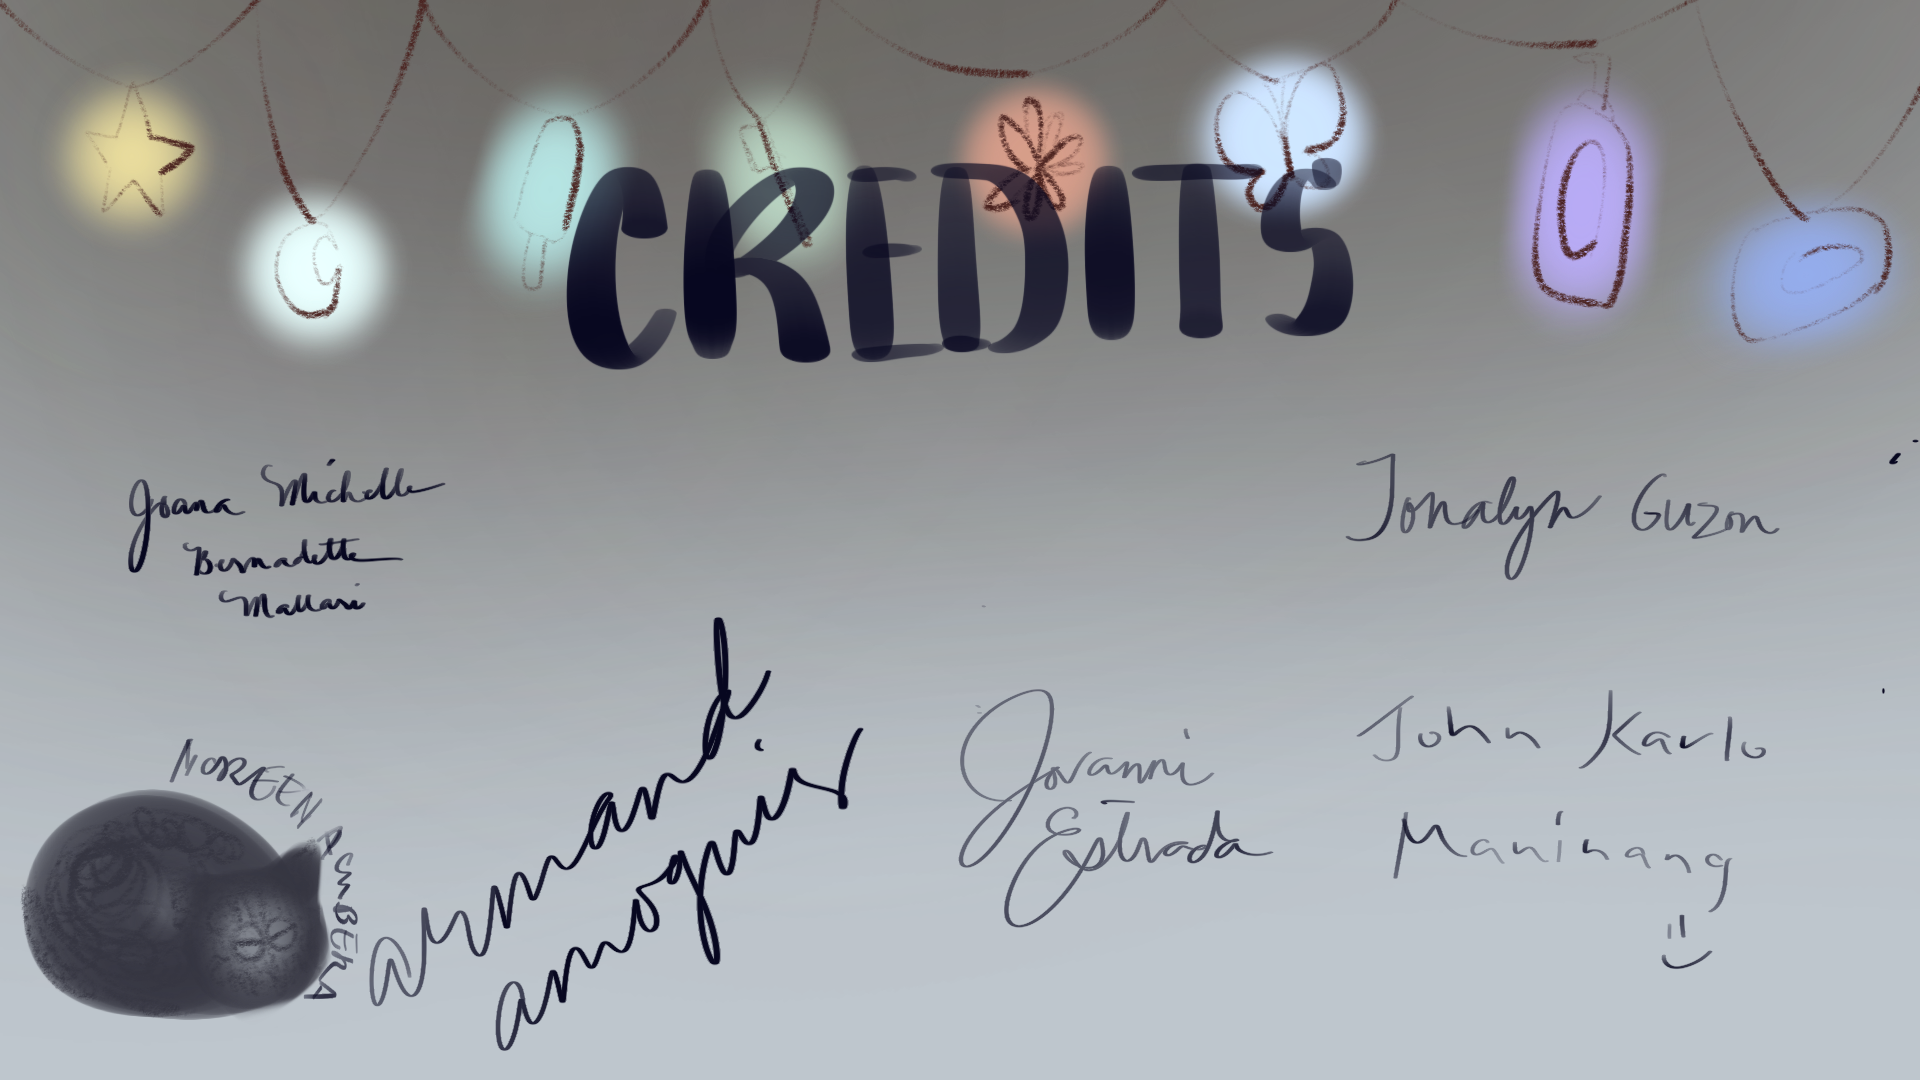 CREDITS
Joana Michelle
Bernadette
Mallari
Jonalyn Guzon
NOREEN
armand
amoguis
Jovanni
Estrada
John Karlo
Maninang